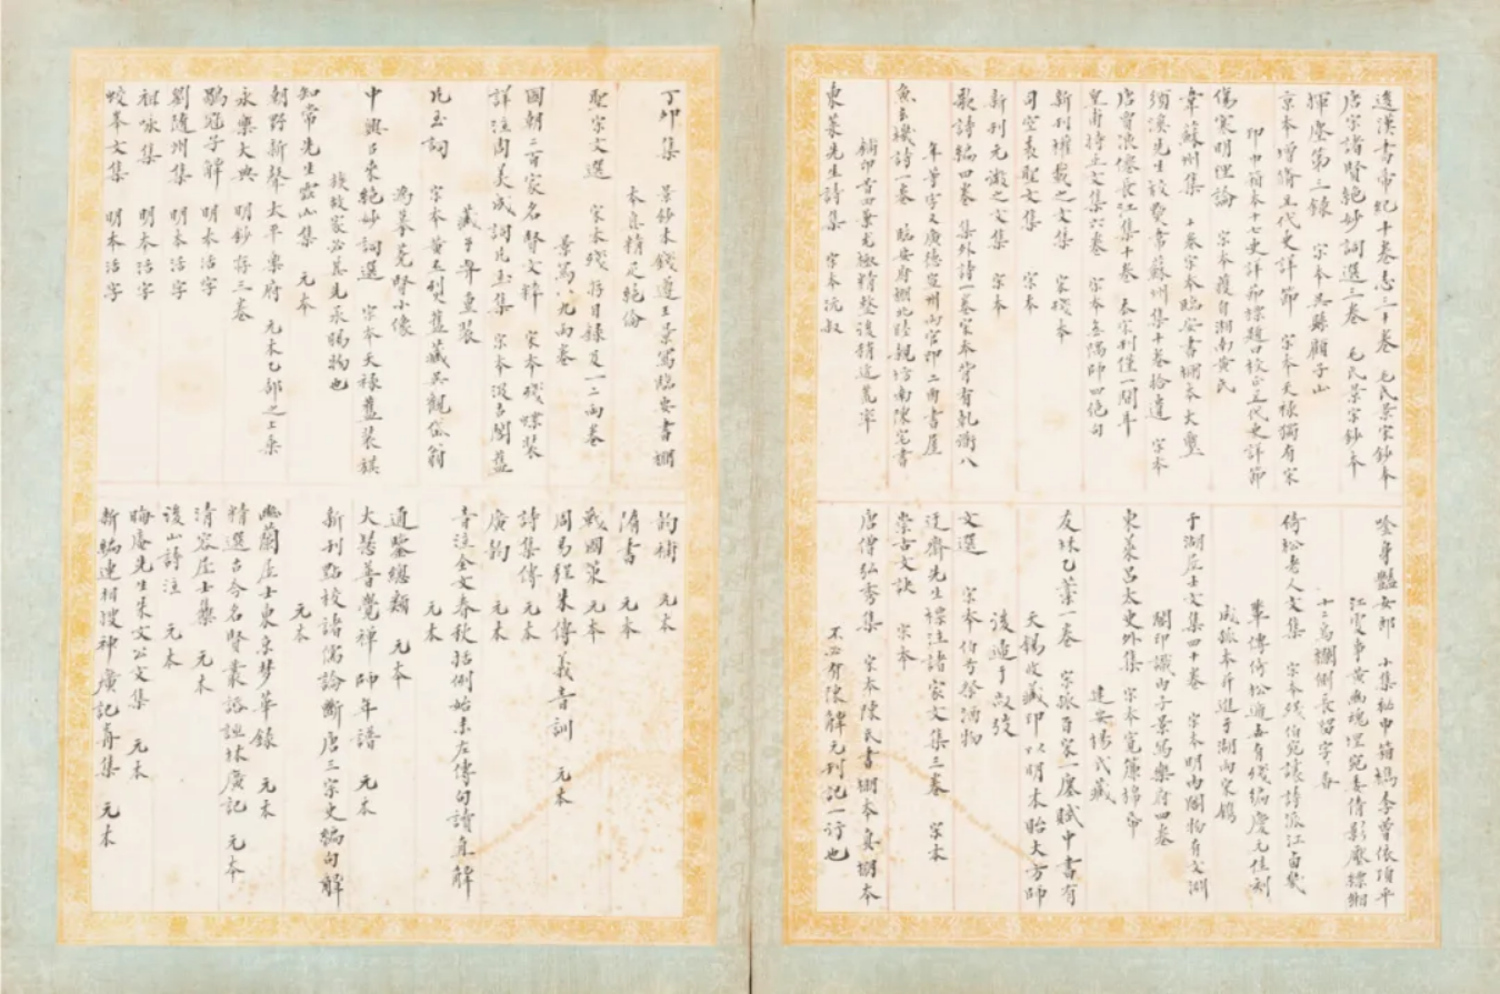 達漢書帝紀十卷志三十卷 毛氏景宋鈔本
唐宋諸賢絕妙詞選三卷 毛氏景宋鈔本
揮麈第三錄 宋本 吳縣顧子山
京本增修五代史詳節 宋本 天祿獨有宋
印巾箱本十七史詳節標題曰校正五代史詳節
傷寒明理論 宋本 獲自湖南黃氏
韋蘇州集 十卷 宋本 臨安書棚本大璽
須溪先生校點韋蘇州集十卷拾遺 宋本
唐賈浪僊長江集十卷 泰宋刊僅一關耳
皇甫持正文集六卷 宋本 無隅師四絕句
新刊權載之文集 宋殘本
司空表聖文集 宋本
新刊元微之文集 宋本
歌詩編四卷 集外詩一卷 宋本 背有乾隆八
年等字又廣德宣州兩官印 二南書屋
魚玄機詩一卷 臨安府棚北睦親坊南陳宅書
鋪印 黃四葉尤極精整後稍近荒率
東萊先生詩集 宋本 沅叔
唫身豔女郎 小集祕巾箱鴻李曾依項平
江雯事黃幽魂埋宛委倩影壓縹緗
十二烏欄側長留字字香
倚松老人文集 宋本 殘 伯宛讓詩派江西幾
輩傳倚松適吾有殘編慶元佳刻
成孤本 斤進于湖兩宋鶼
于湖居士文集四十卷 宋本 明內閣物有文淵
閣印識 丙子景寫樂府四卷
東萊呂太史外集 宋本 寬簾綿帋
建安楊氏藏
友林乙藁一卷 宋孤百家一廛賦中書有
天錫收藏印 以明本貽大方師
後適于敲弢
文選 宋本 伯兮祭酒物
迂齋先生標注諸家文集三卷 宋本
崇古文訣 宋本
唐僧弘秀集 宋本 陳氏書棚本 真棚本
不必有陳解元刊記一行也
丁卯集 景鈔本 錢遵王景寫臨安書棚
本 真精足絕倫
聖宋文選 宋本 殘 存目錄及一二兩卷
景寫八九兩卷
國朝二百家名賢文粹 宋本 殘 蝶裝
詳注周美成詞片玉集 宋本 汲古閣舊
藏 手弇重裝
片玉詞 宋本 黃丕烈舊藏 吳觀岱翁
為摹蕘賢小像
中興以來絕妙詞選 宋本 天祿舊裝 縢
族故家必恩先承賜物也
知常先生雲山集 元本
朝野新聲太平樂府 元本 乙部之上乘
永樂大典 明鈔 存三卷
鶡冠子解 明本活字
劉隨州集 明本活字
祖咏集 明本活字
蛟峯文集 明本活字
韵補 元本
隋書 元本
戰國策 元本
周易程朱傳義音訓 元本
詩集傳 元本
廣韵 元本
音注全文春秋括例始末左傳句讀直解
元本
通鑒總類 元本
大慧普覺禪師年譜 元本
新刊點校諸儒論斷唐三宗史編句解
元本
幽蘭居士東京夢華錄 元本
精選古今名賢叢話詩林廣記 元本
清容居士集 元本
後山詩注 元本
晦庵先生朱文公文集 元本
新編連相搜神廣記前集 元本